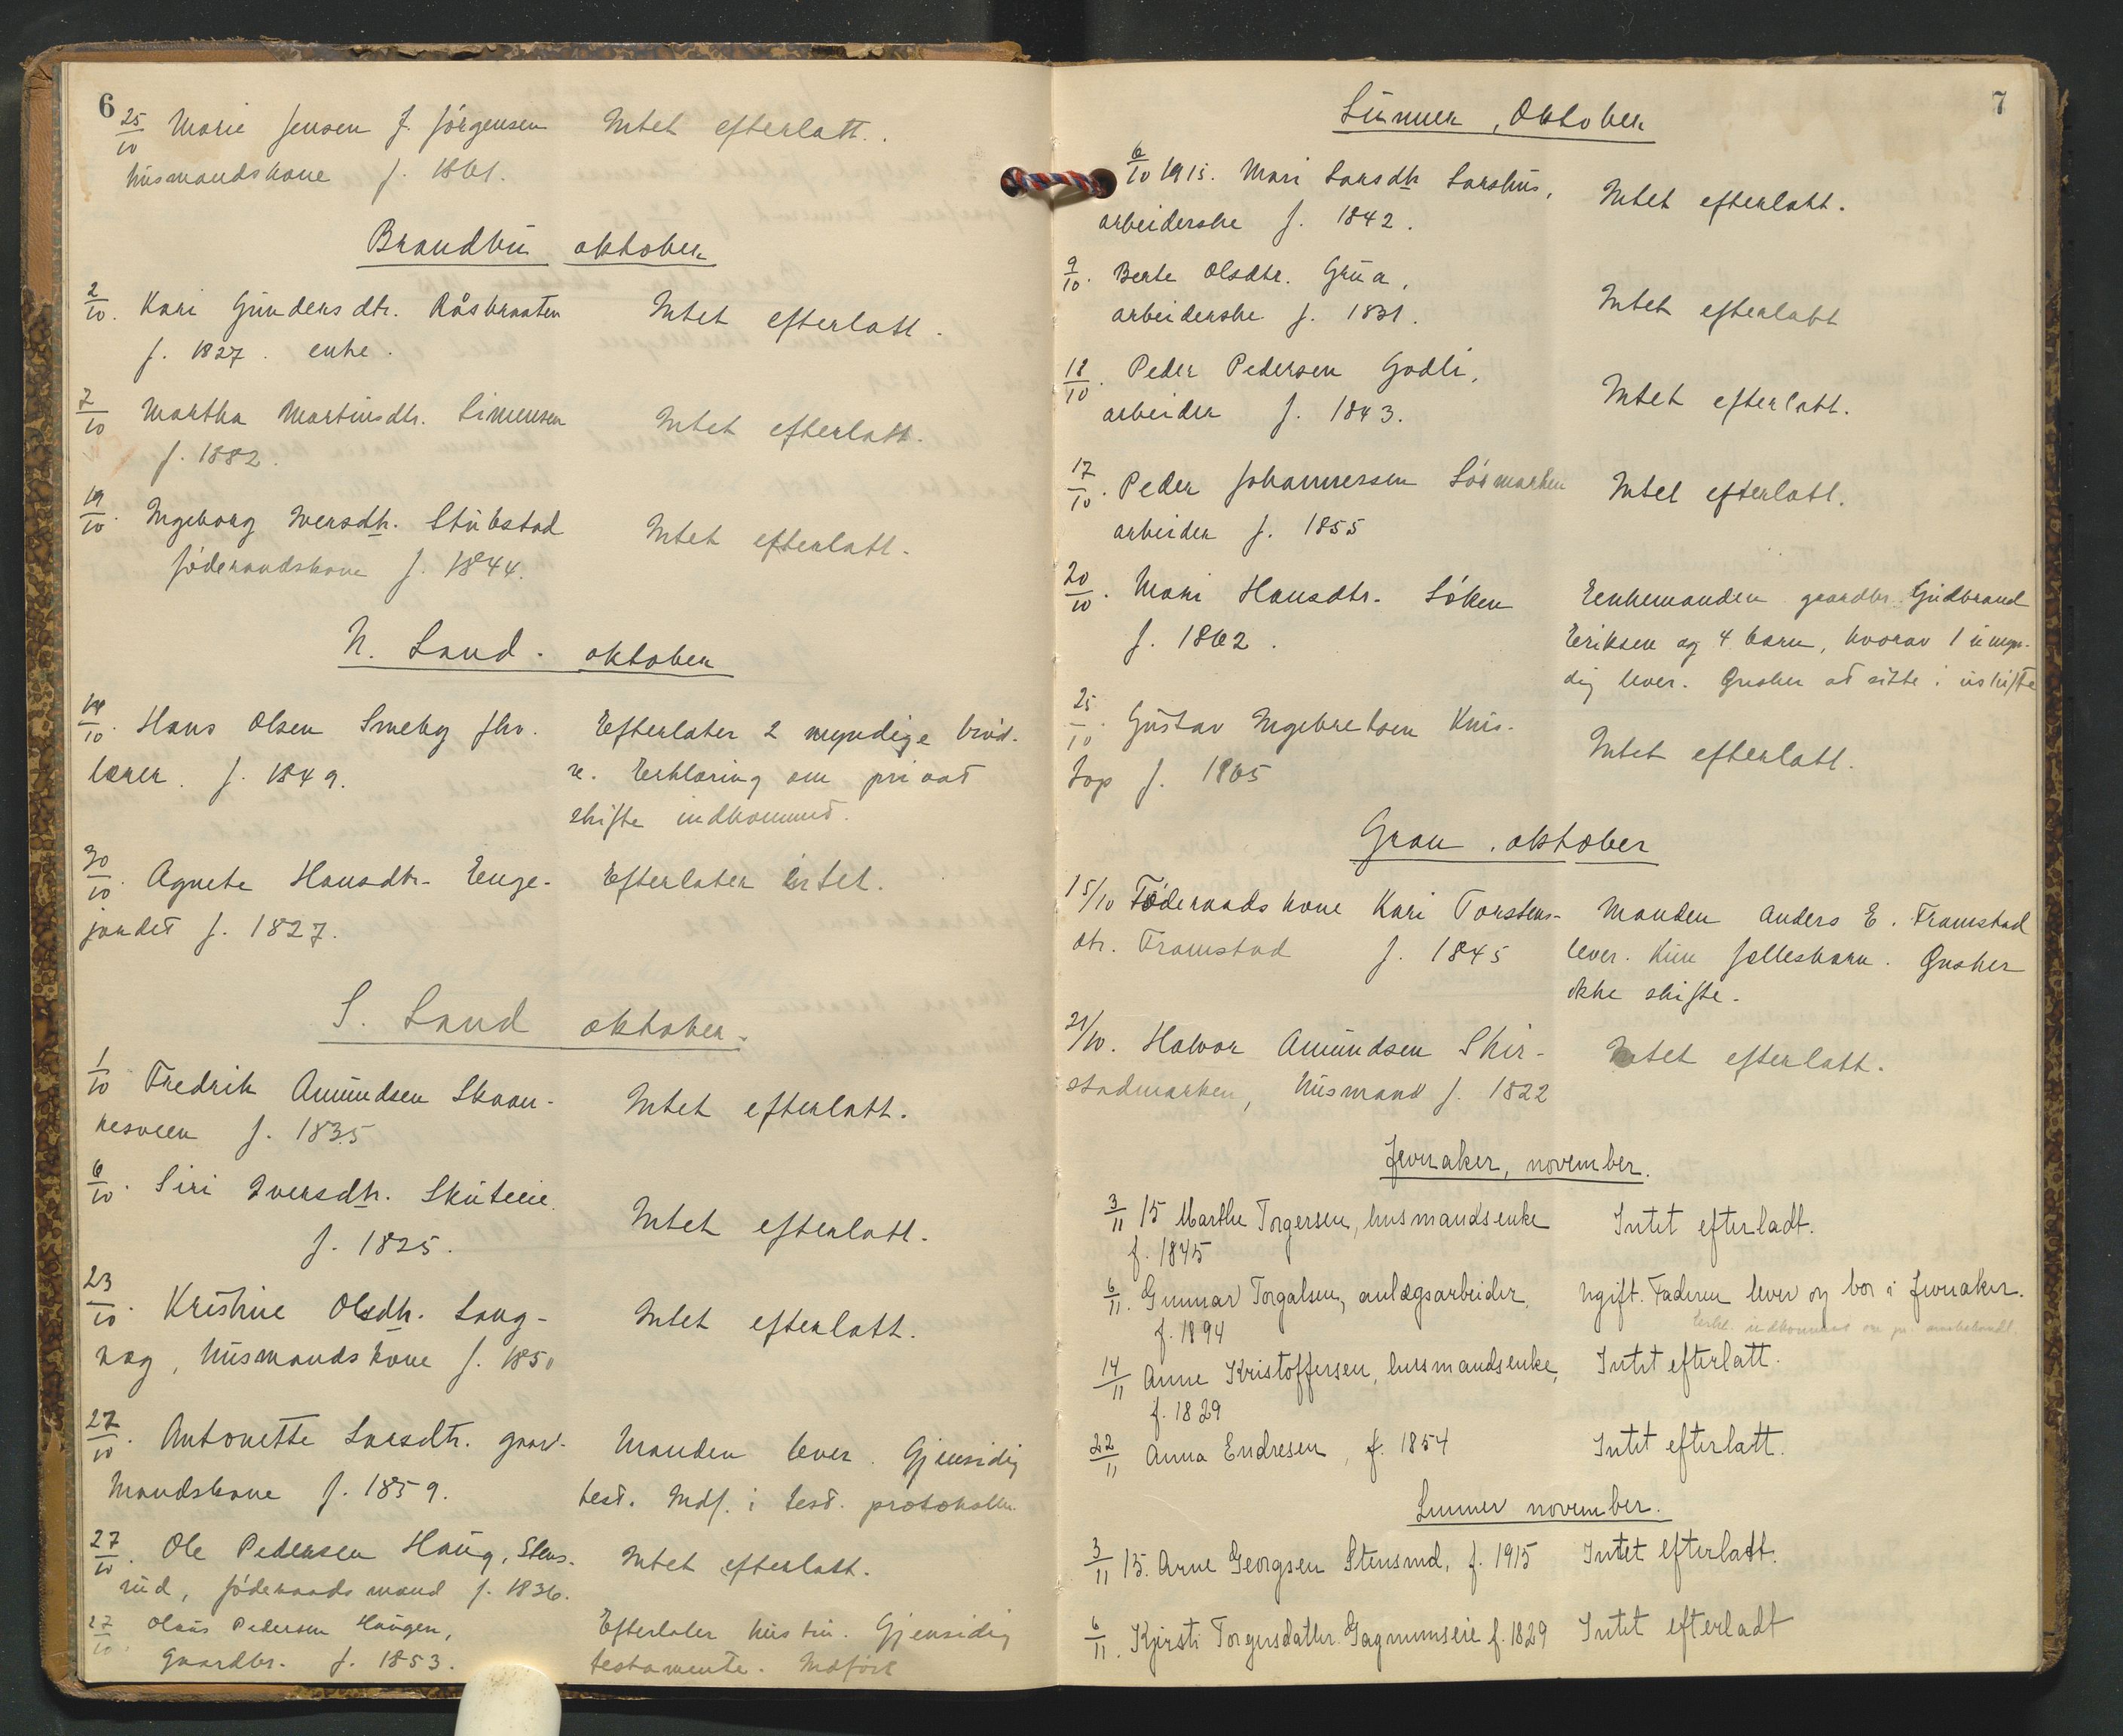 6
25/10 Marie Jensen f. Jørgensen Intet efterlatt.
husmandskone f. 1861.
Brandbu oktober
2/10. Kari Gundersdtr. Råsbraaten Intet efterlatt.
f. 1827. enke.
7/10 Martha Martinsdtr. Simensen Intet efterlatt.
f. 1882.
19/10. Ingeborg Iversdtr. Stubstad Intet efterlatt.
föderaadskone f. 1844.
N. Land. oktober
18/10. Hans Olsen Smeby fhv. Efterlater 2 myndige brød-
lærer. f. 1849. re. Erklæring om privat
skifte indkommet.
30/10. Agnete Hansdtr. Enge- Efterlater intet.
jordet f. 1827.
S. Land oktober.
1/10 Fredrik Amundsen Skaan-
kesveen f. 1835 Intet efterlatt.
6/10. Siri Iversdtr. Skuteeie.
f. 1825. Intet efterlatt.
23/10. Kristine Olsdtr. Lang- Intet efterlatt.
vag, husmandskone f. 1850
27/10. Antonette Larsdtr. gaard- Manden lever. Gjensidig
mandskone f. 1859. test. Indf. i test. protokollen.
27/10. Ole Pedersen Haug, Stens- Intet efterlatt.
rud, föderaadsmand f. 1836.
27/10. Olaus Pedersen Haugen, Efterlater hustru. Gjensidig
Gaardbr. f. 1853. testamente. Indført
7
Lunner, Oktober
6/10 1915. Mari Larsdtr Larshus, Intet efterlatt.
arbeiderske f. 1842.
9/10. Berte Olsdtr. Grua, Intet efterlatt
arbeiderske f. 1831.
18/10. Peder Pedersen Godli, Intet efterlatt.
arbeider f. 1843.
17/10. Peder Johannessen Lösmarken Intet efterlatt.
arbeider f. 1855
20/10. Mari Hansdtr. Löken Eenkemanden gaardbr. Gudbrand
f. 1862. Eriksen og 4 barn, hvorav 1 umyn-
dig lever. Ønsker at sitte i uskifte
25/10. Gustav Ingebretsen Knis- Intet efterlatt.
top f. 1865
Gran. oktober
15/10 Föderaadskone Kari Torstens- Manden Anders E. Framstad
dtr. Framstad f. 1845 lever. Kun fællesbarn. Ønsker
ikke skifte.
21/10. Halvor Amundsen Skir- Intet efterlatt.
stadmarken, husmand f. 1822
Jevnaker, november.
3/11 15 Marthe Torgersen, husmandsenke Intet efterladt.
f. 1845
6/11. Gunnar Torgalsen, anlægsarbeider, ugift. Faderen lever og bor i Jevnaker.
f. 1894 Erkl. indkommet om pr.
14/11 Anne Kristoffersen, husmandsenke, Intet efterlatt.
f. 1829
22/11 Anna Endresen, f. 1854 Intet efterlatt.
Lunner november.
3/11 15. Arne Georgsen Stensrud, f. 1915 Intet efterladt.
6/11. Kjersti Torgersdatter Gagnumseie f. 1829 Intet efterladt